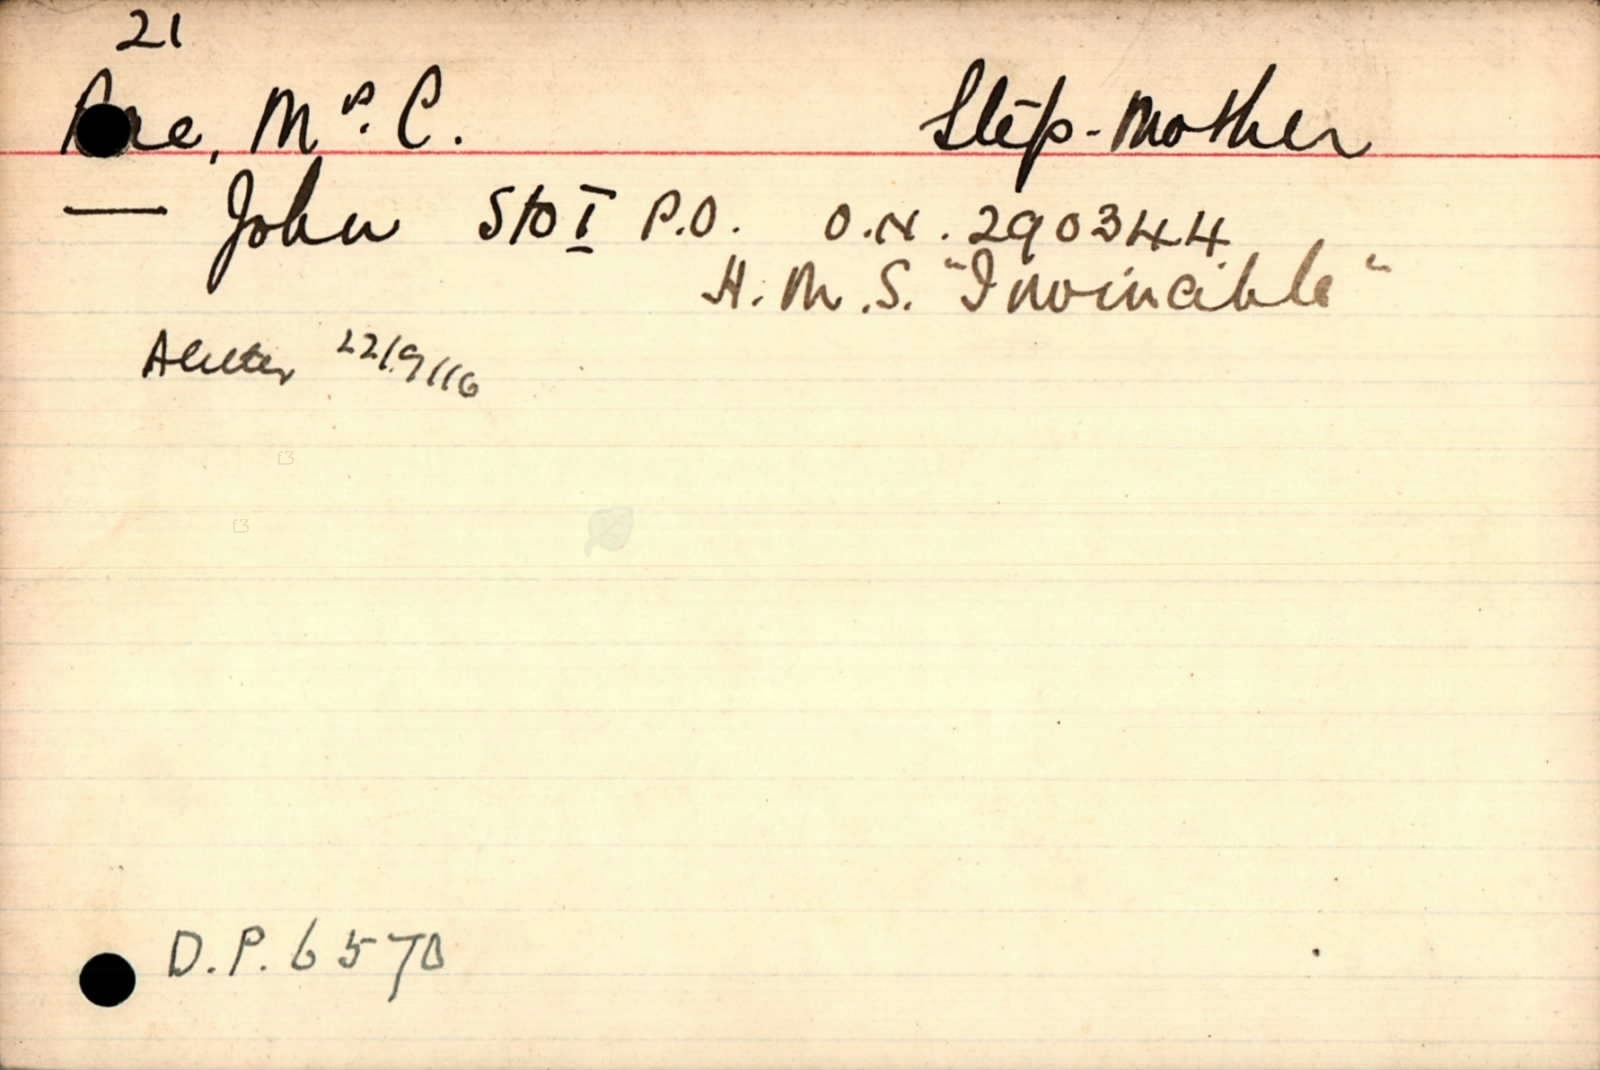 21
Mrs. C. Step-Mother
— John Sto I P.O. O.N. 290344
H.M.S. "Invincible"
22/9/16
D.P. 6570